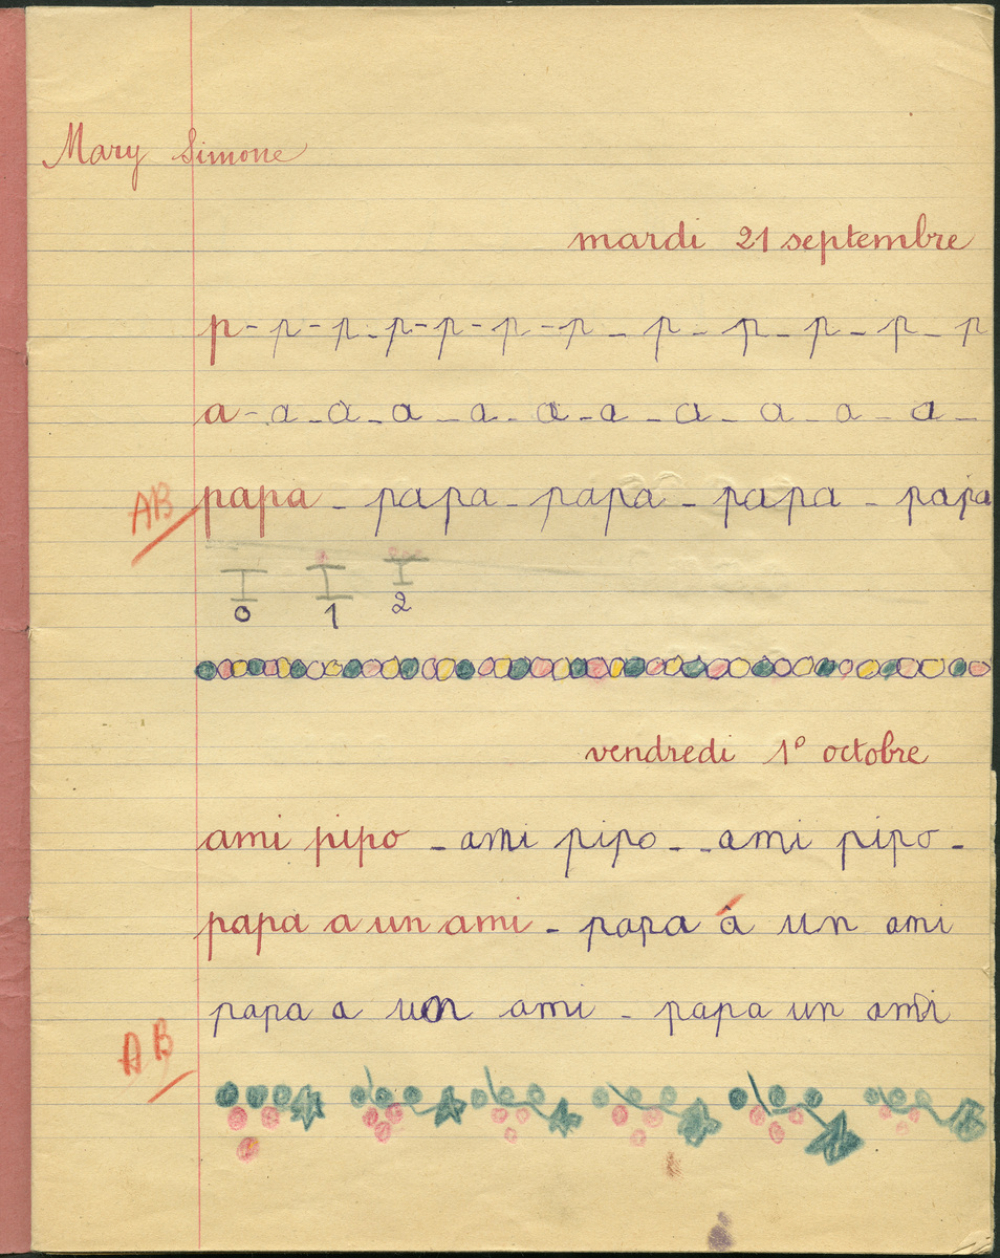 Mary Simone
mardi 21 septembre
p - p - p - p - p - p - p - p - p - p - p - p
a - a - a - a - a - a - a - a - a - a - a -
AB papa - papa - papa - papa - papa
0 1 2
vendredi 1° octobre
ami pipo - ami pipo - - ami pipo -
papa a un ami - papa à un ami
papa a un ami - papa un ami
AB